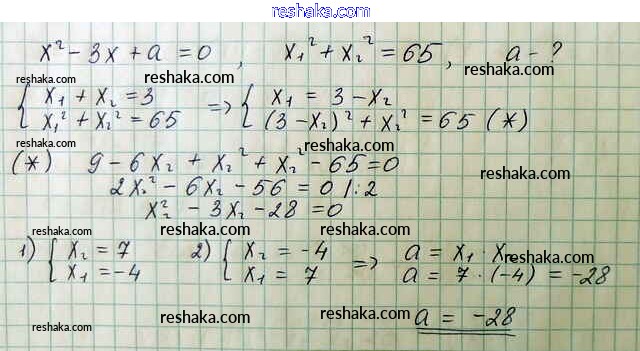 reshaka.com
x² - 3x + a = 0, x₁² + x₂² = 65, a - ?
reshaka.com reshaka.com reshaka.com
{ x₁ + x₂ = 3 => { x₁ = 3 - x₂
x₁² + x₂² = 65 (3 - x₂)² + x₂² = 65 (*)
reshaka.com reshaka.com
(*) 9 - 6x₂ + x₂² + x₂² - 65 = 0
reshaka.com
2x₂² - 6x₂ - 56 = 0 |:2
x₂² - 3x₂ - 28 = 0
reshaka.com reshaka.com reshaka.com
1) { x₂ = 7 2) { x₂ = -4 => a = x₁ · x₂
x₁ = -4 x₁ = 7 a = 7 · (-4) = -28
reshaka.com reshaka.com reshaka.com
a = -28
reshaka.com